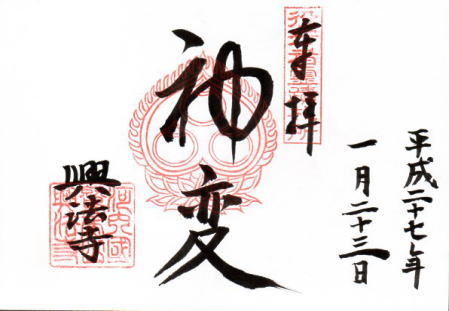 平成二十七年
一月二十三日
奉拝
神変
興法寺